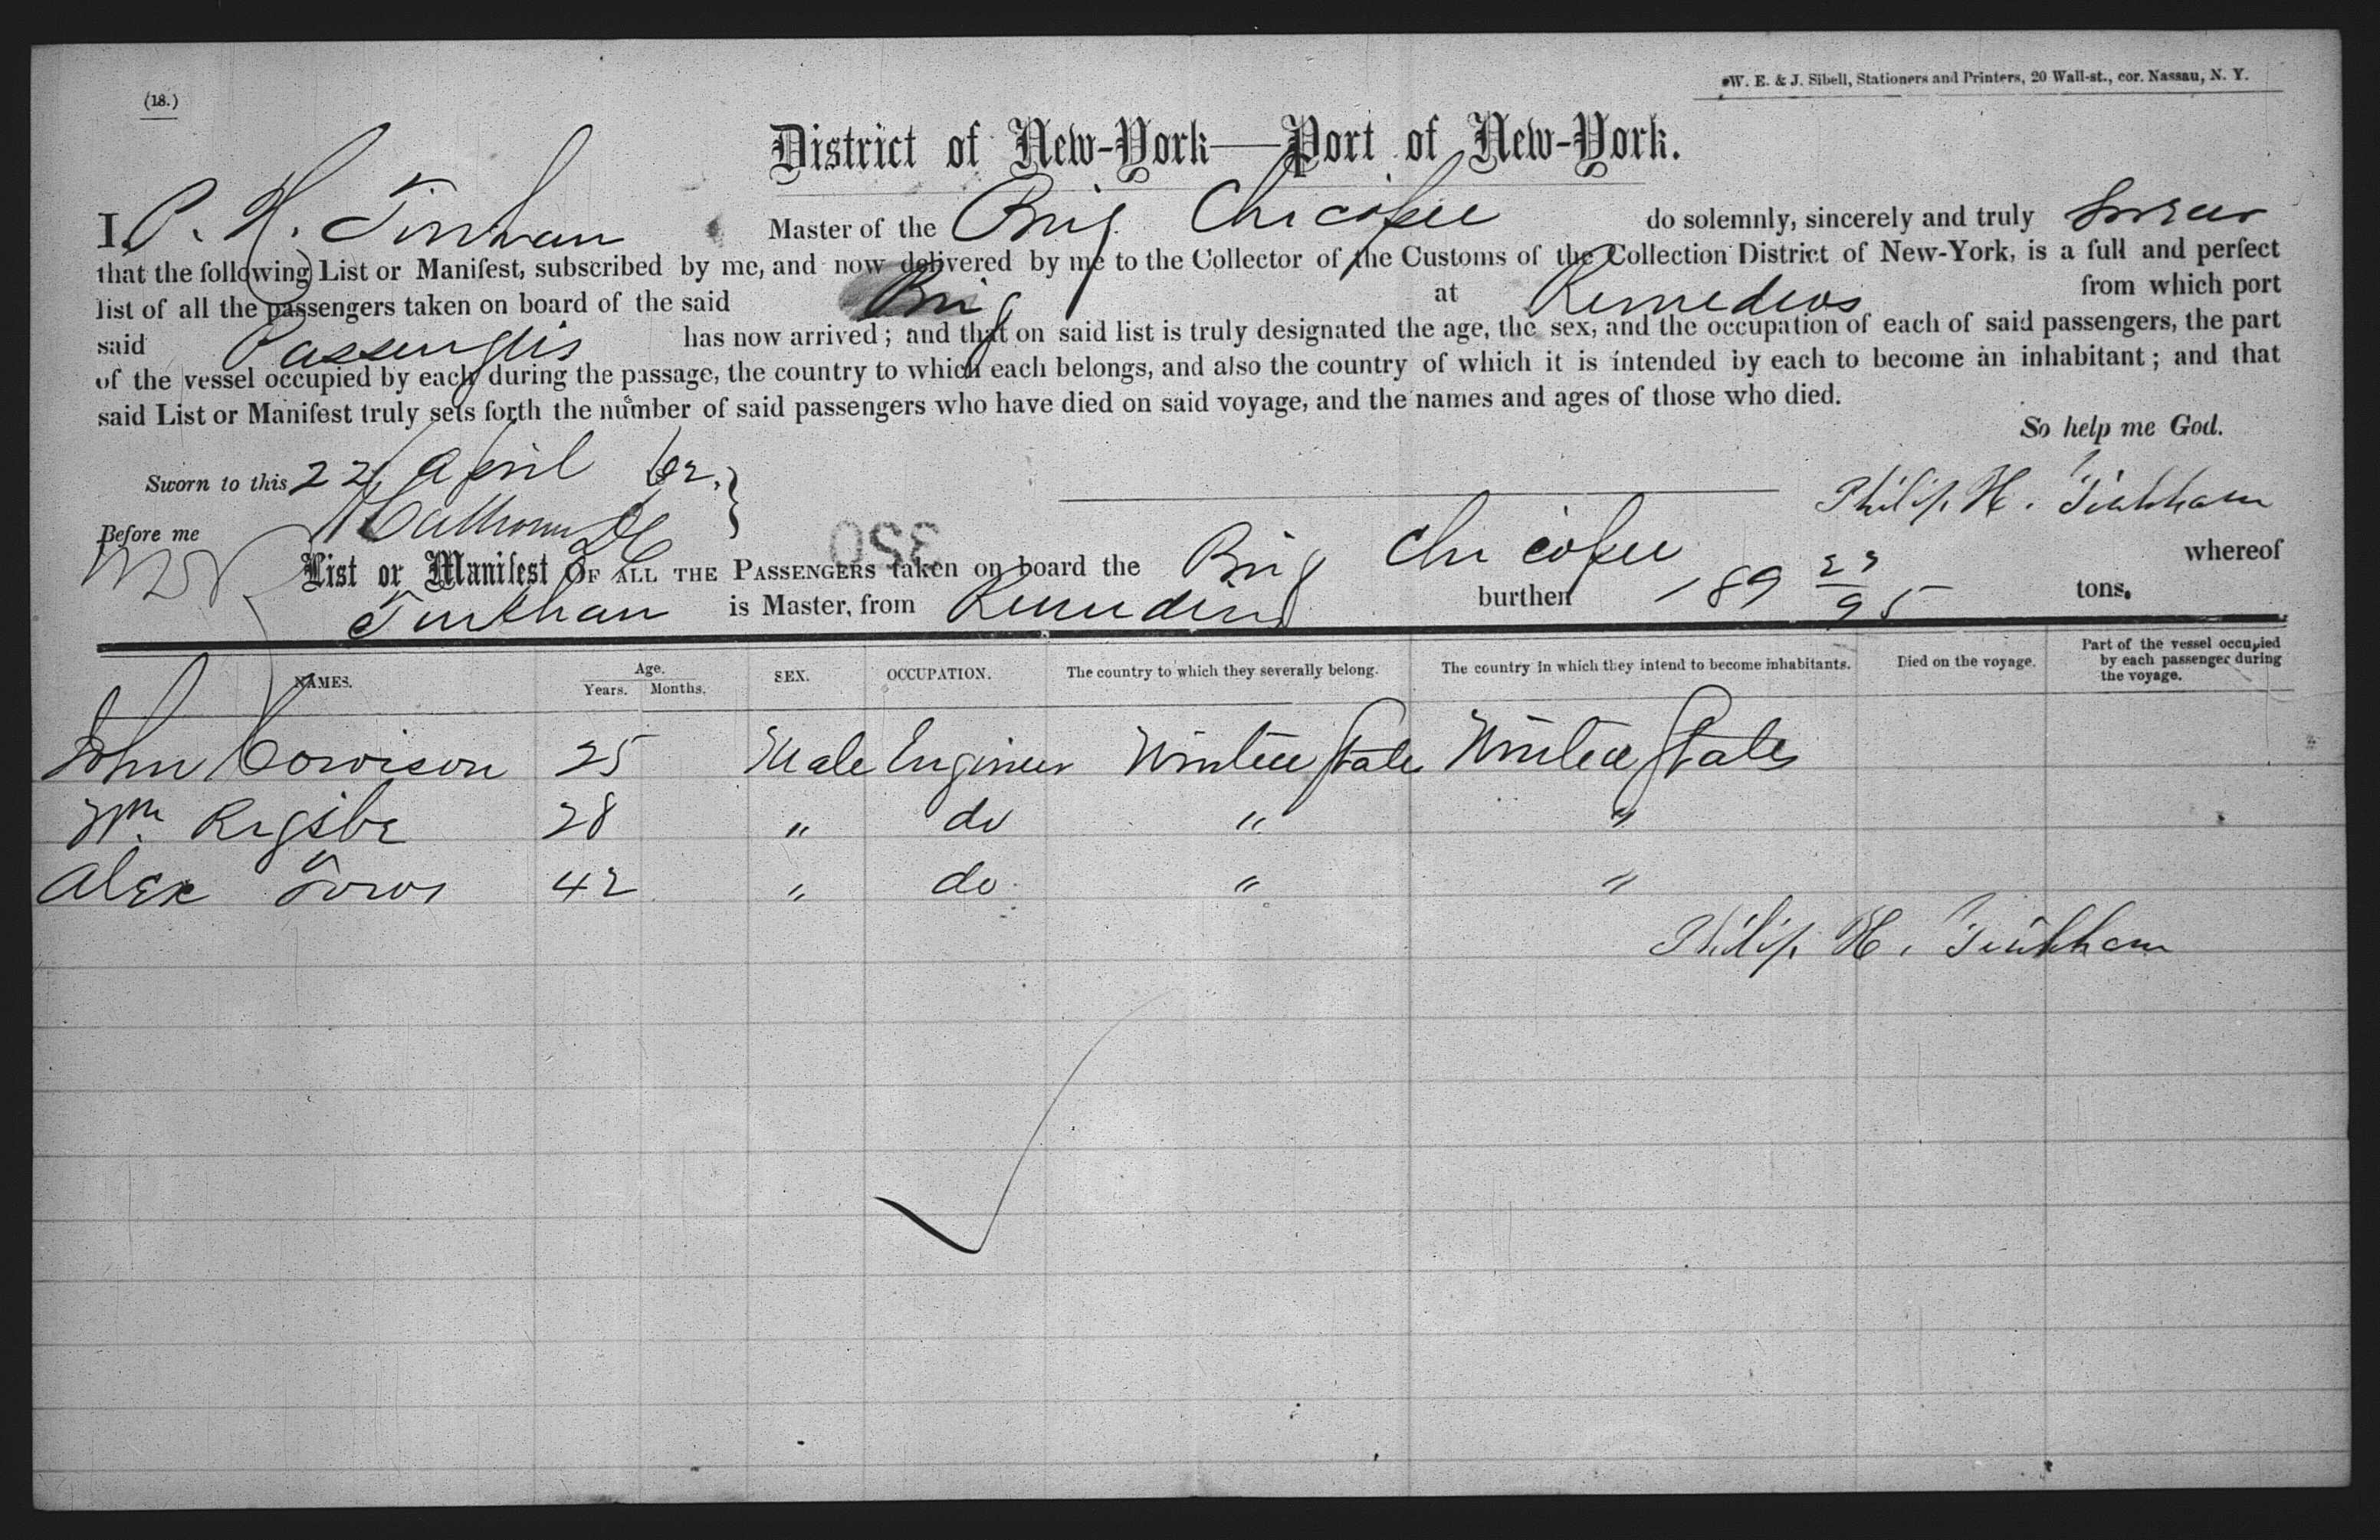 (18.)
W. E. & J. Sibell, Stationers and Printers, 20 Wall-st., cor. Nassau, N. Y.
District of New-York—Port of New-York.
I, P. H. Tinkham Master of the Brig Chicopee do solemnly, sincerely and truly swear
that the following List or Manifest, subscribed by me, and now delivered by me to the Collector of the Customs of the Collection District of New-York, is a full and perfect
list of all the passengers taken on board of the said Brig at Remedios from which port
said Passengers has now arrived; and that on said list is truly designated the age, the sex, and the occupation of each of said passengers, the part
of the vessel occupied by each during the passage, the country to which each belongs, and also the country of which it is intended by each to become an inhabitant; and that
said List or Manifest truly sets forth the number of said passengers who have died on said voyage, and the names and ages of those who died.
So help me God.
Sworn to this 22 April 1862.
Philip H. Tinkham
Before me
350
List or Manifest OF ALL THE PASSENGERS taken on board the Brig Chicopee whereof
Tinkham is Master, from Remedios burthen 189 23/95 tons.
NAMES. Age. Years. Months. SEX. OCCUPATION. The country to which they severally belong. The country in which they intend to become inhabitants. Died on the voyage. Part of the vessel occupied by each passenger during the voyage.
John 25 Male Engineer United States United States
Wm Rigsbe 28 " do " "
Alex 42 " do " "
Philip H. Tinkham